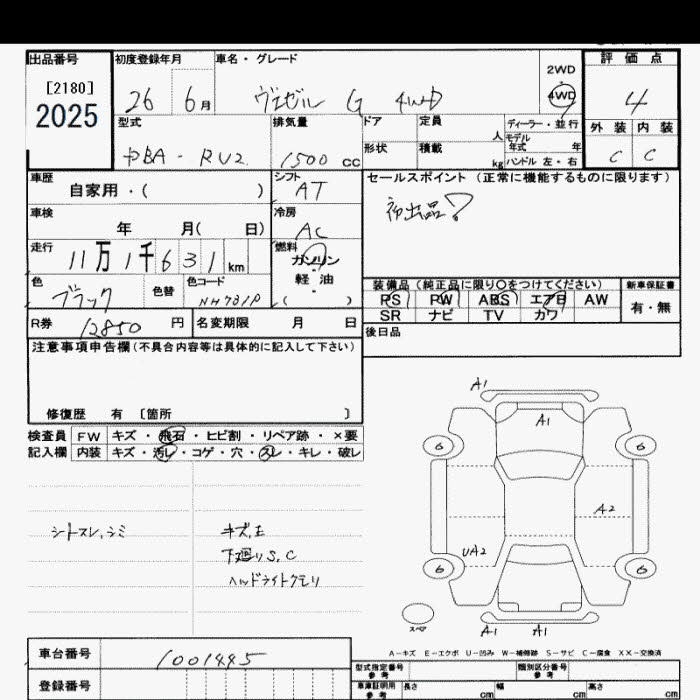 出品番号
[2180]
2025
初度登録年月
26 6月
車名・グレード
ヴェゼル G 4WD
2WD
・
4WD
評価点
4
外装 内装
C C
型式
DBA - RU2
排気量
1500 cc
ドア
定員
人
形状
積載
kg
ディーラー・並行
モデル
年式 年
ハンドル 左・右
車歴
自家用・( )
シフト
AT
セールスポイント (正常に機能するものに限ります)
初出品
車検
年 月( 日)
冷房
AC
走行
11万1千631km
燃料
ガソリン
軽油
( )
色
ブラック
色替
色コード
NH731P
装備品 (純正品に限り〇をつけてください)
PS PW ABS エアB AW
SR ナビ TV カワ
新車保証書
有・無
R券
12850 円
名変期限 月 日
後日品
注意事項申告欄(不具合内容等は具体的に記入して下さい)
修復歴 有 [箇所 ]
検査員
記入欄
FW キズ・飛石・ヒビ割・リペア跡・×要
内装 キズ・汚レ・コゲ・穴・スレ・キレ・破レ
シートスレ、シミ
キズ、E
下廻りS、C
ヘッドライトクモリ
A1
A1
6 6
A2
UA2
6 6
スペア
A1 A1
A-キズ E-エクボ U-凹み W-補修跡 S-サビ C-腐食 XX-交換済
車台番号
1001445
登録番号
型式指定番号
参考
類別区分番号
参考
車庫証明用
参考
長さ cm
幅 cm
高さ cm